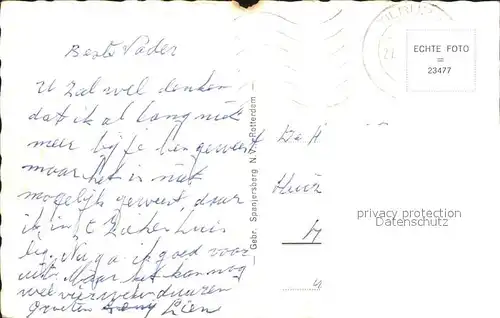 Beste Vader
U zal wel denken
dat ik al lang niet
meer bij je ben geweest
maar het is niet
mogelijk geweest daar
ik in 't Ziekenhuis
lig. Nu ga ik goed voor
uit. Maar het kan nog
wel vier weken duuren
Groeten Lien
Gebr. Spanjersberg N.V., Rotterdam
ECHTE FOTO
=
23477
De H
Huiz
privacy protection
Datenschutz